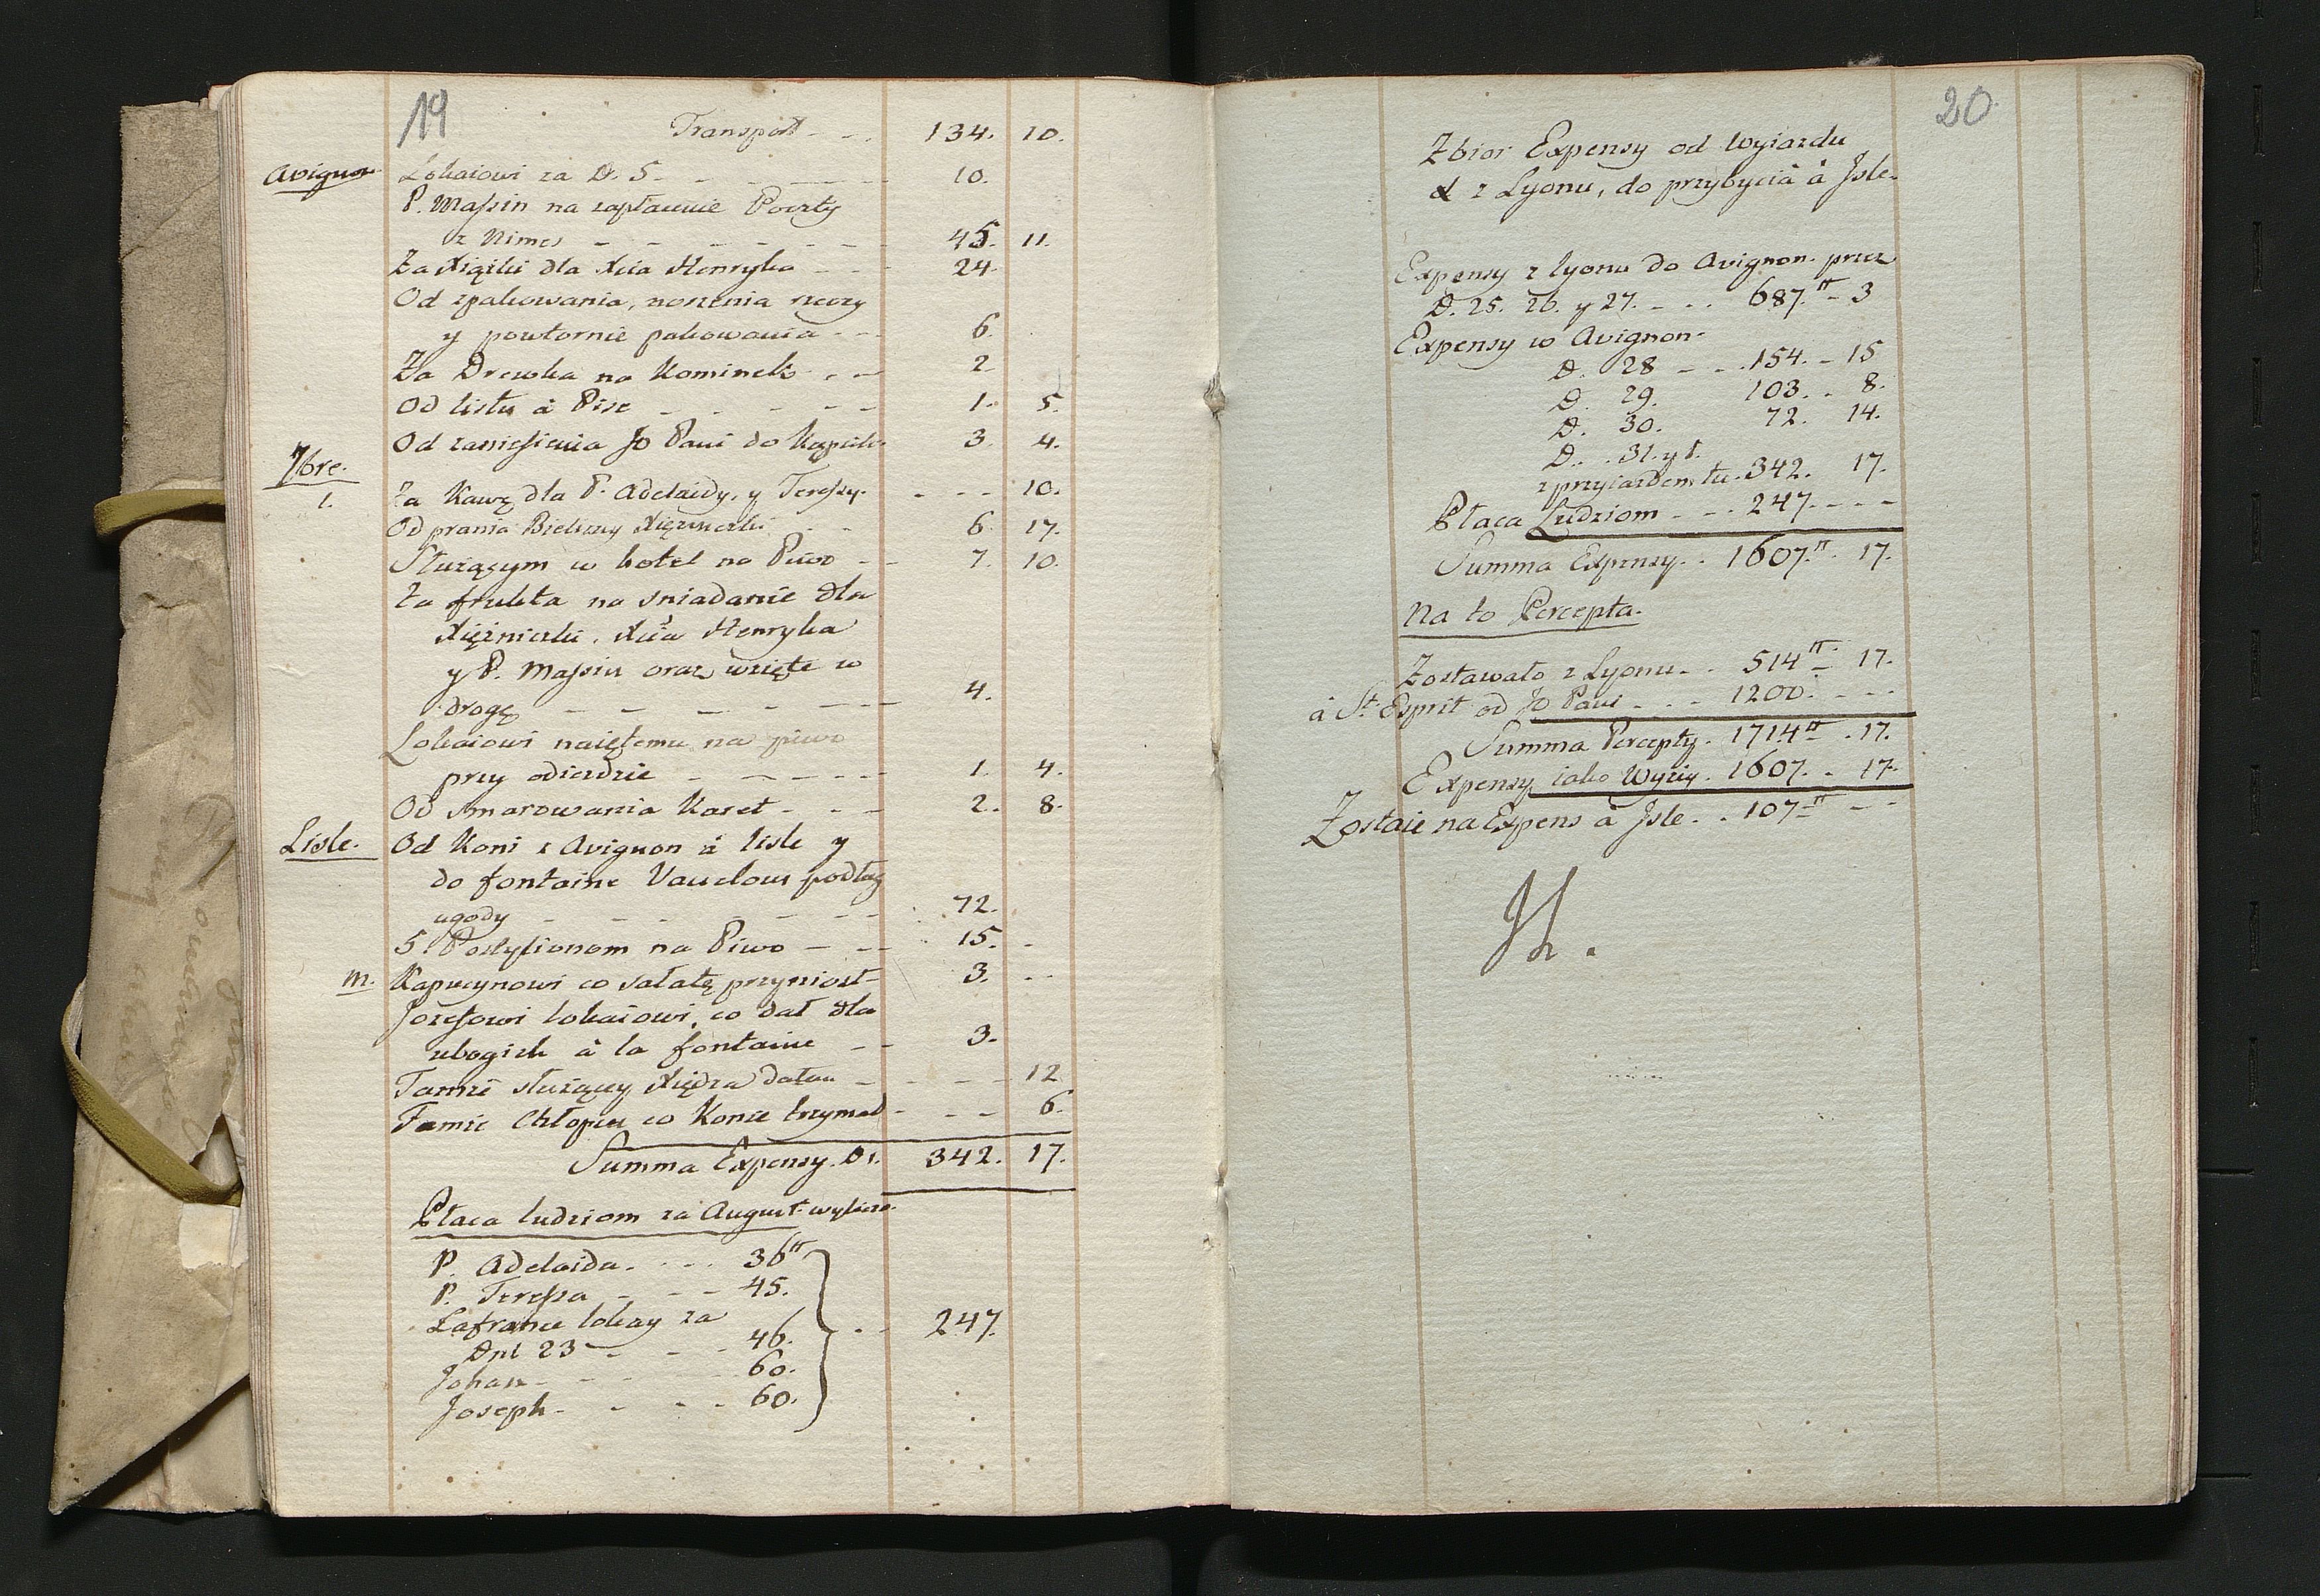 19
Transport - - . 134. 10.
Avignon Lokaiowi za D. 5 - - - 10.
P. Massin na zapłacenie Poczty
z Nimes - - - - - - 45. 11.
Za Xiążki dla Xcia Henryka - - 24.
Od spakowania, noszenia rzeczy
y powtornie pakowania - - 6.
Za Drewka na Kominek . - - 2.
Od listu á Pise - - - - - 1. 5.
Od zaniesienia JO Pani do 3. 4.
7bre.
1. Za Kawę dla P. Adelaidy, y Teressy. - - - 10.
Od prania Bielizny Xiężniczki - - 6. 17.
Służącym w hotel na Piwo - - 7. 10.
Za frukta na sniadanie dla
Xiężniczki, Xcia Henryka
y P. Massin oraz wzięte w
drogę - - - - - - - 4.
Lokaiowi naiętemu na piwo
przy odieździe - - - - - 1. 4.
Od smarowania Karet - - - 2. 8.
Lisle. Od Koni z Avignon á lisle y
do fontaine Vaucluus podług
ugody - - - - - - - 72.
5. Postylionom na Piwo - - - 15. -
m. Kapucynowi co sałatę przyniosł - 3. - -
Jozefowi lokaiowi, co dał dla
ubogich á la fontaine - - 3.
Tamże służącey Xiędza dałem - - - - 12
Tamże Chłopcu co Konie trzymał - - - - 6.
Summa Expensy. D 1. 342. 17.
Płaca ludziom za August
P. Adelaida. - - . 36tt
P. Teressa - - - 45.
Lafrance lokay za
Dni 23 - - - 46. - - 247.
Johan - - - - 60.
Joseph - - - - 60.
20
Zbior Expensy od Wyiazdu
z Lyonu, do przybycia á Jsle.
Expensy z lyonu do Avignon. przez
D. 25. 26. y 27. - . . 687.tt - 3
Expensy w Avignon.
D. 28 - - . 154. - 15
D. 29. 103. . 8.
D. 30. 72. 14.
D. . 31. y 1.
z przyiazdem tu. 342. 17.
Płaca Ludziom - - . 247. - - -
Summa Expensy . . 1607.tt. 17.
Na to Percepta.
Zostawało z Lyonu - . 514tt - 17.
á St. Esprit od JO Pani - - - 1200. - - -
Summa Percepty . 1714tt . 17.
Expensy iako Wyżey . 1607. . 17.
Zostaie na Expens á Jsle . . 107.tt - -